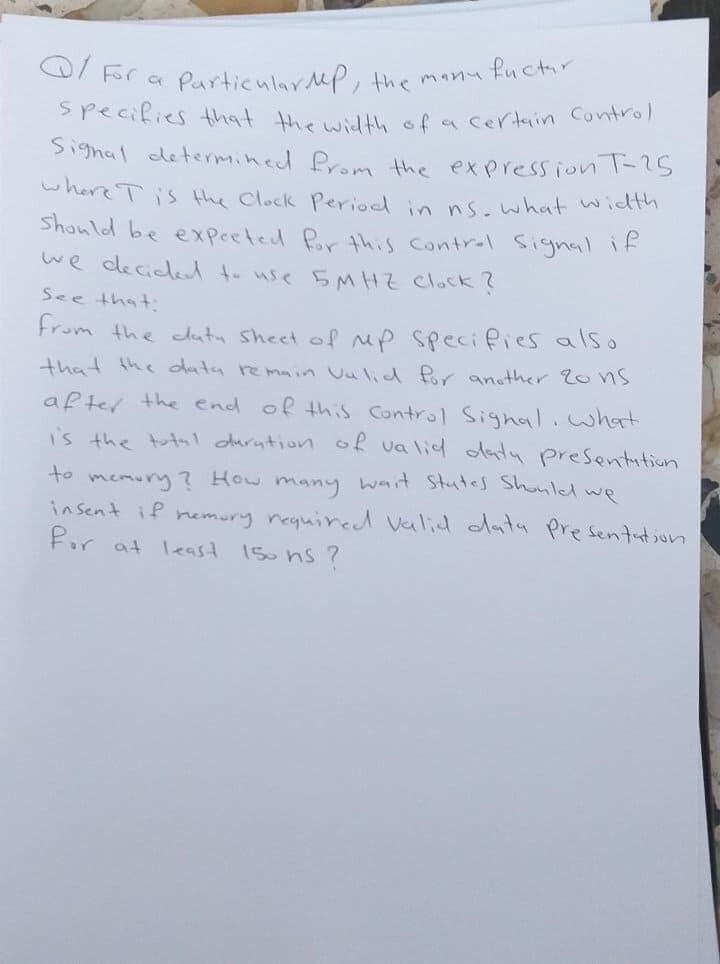 Q1 For a Particular MP, the manufuctur
specifies that the width of a certain Control
Signal determined from the expression T-25
where T is the Clock Period in ns. what width
should be expected for this Control Signal if
we decided to use 5MHZ Clock?
See that:
from the data sheet of MP specifies also
that the data remain valid for another 20 ns
after the end of this Control Signal. what
is the total duration of valid data presentation
to memory? How many wait States Should we
insent if memory required valid data presentation
for at least 150 ns?